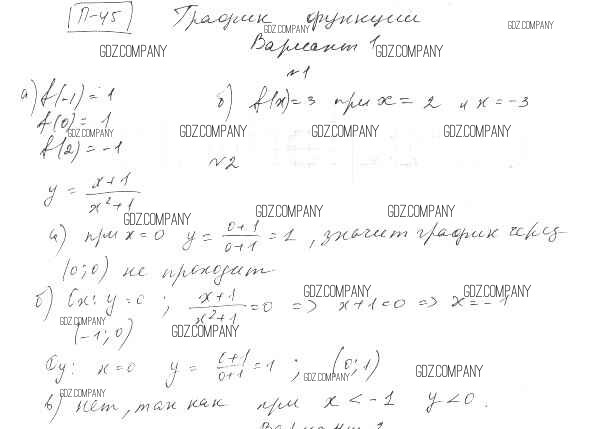 П-45 График функции
GDZ.COMPANY GDZ.COMPANY
Вариант 1
GDZ.COMPANY GDZ.COMPANY
№1
а) f(-1) = 1 б) f(x) = 3 при x = 2 и x = -3
f(0) = 1
GDZ.COMPANY GDZ.COMPANY GDZ.COMPANY GDZ.COMPANY
f(2) = -1
№2
y = x+1 / x²+1
GDZ.COMPANY GDZ.COMPANY GDZ.COMPANY
а) при x=0 y = 0+1 / 0+1 = 1, значит график через
(0;0) не проходит.
GDZ.COMPANY GDZ.COMPANY
б) Ox: y=0 ; x+1 / x²+1 = 0 => x+1=0 => x=-1
GDZ.COMPANY GDZ.COMPANY
(-1;0)
Oy: x=0 y = 0+1 / 0+1 = 1 ; (0;1)
GDZ.COMPANY GDZ.COMPANY
GDZ.COMPANY
в) нет, так как при x < -1 y < 0.